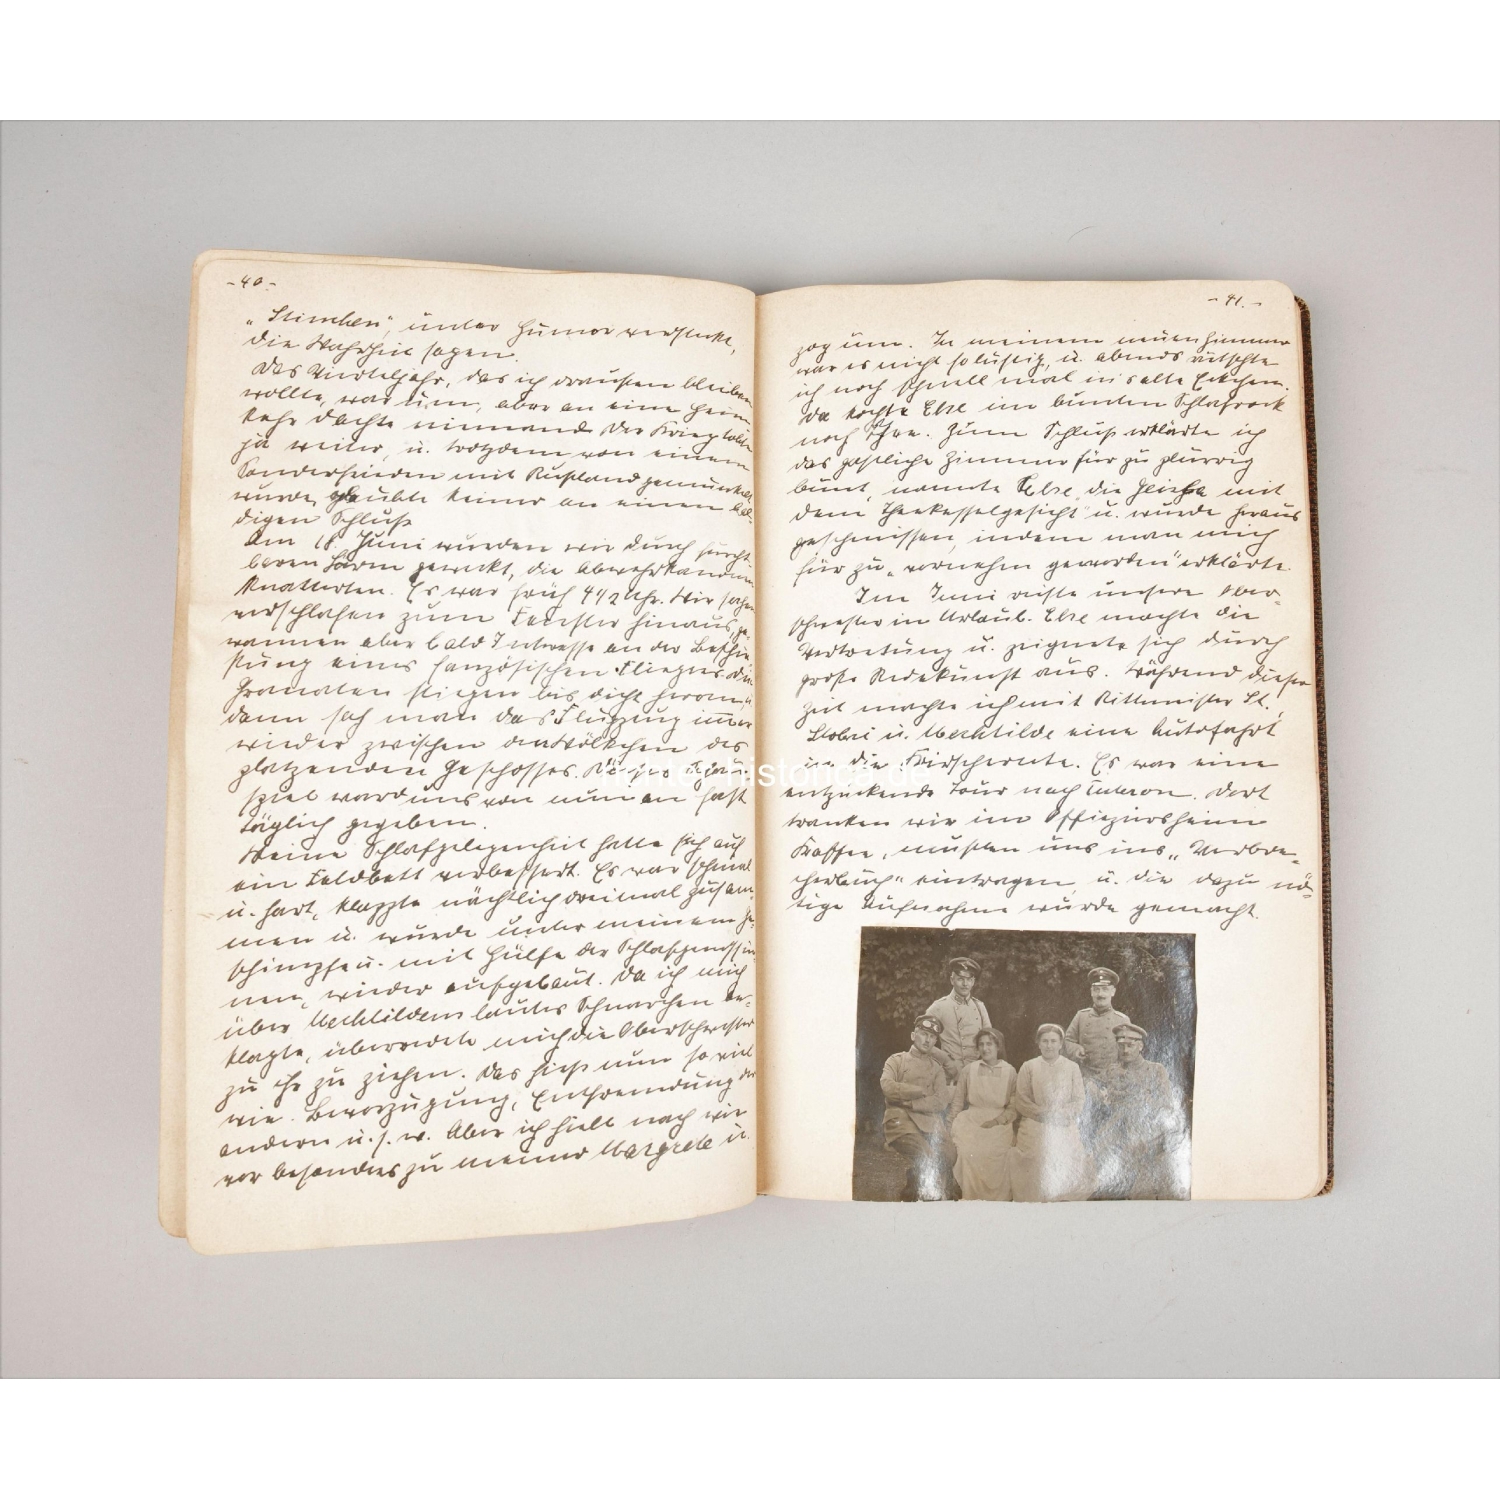 -40-
„Stimchen", unter Humor versteckt,
die Wahrheit sagen.
Das Vierteljahr, das ich draußen bleiben
wollte, war um, aber an eine Heim-
kehr dachte niemand. Der Krieg tobte
ja weiter, u. trotzdem von einem
Sonderfrieden mit Rußland gemunkelt
wurde, glaubte keiner an einen bal-
digen Schluß
Am 18. Juni wurden wir durch furcht-
baren Lärm geweckt, die Abwehrkanonen
knatterten. Es war früh 4 1/2 Uhr. Wir sahen
verschlafen zum Fenster hinaus, ge-
wannen aber bald Interesse an der Beschie-
ßung eines französischen Fliegers. Die
Granaten stiegen bis dicht heran, u.
dann sah man das Flugzeug immer
wieder zwischen den Wölkchen des
platzenden Geschosses. Dieses Schau-
spiel ward uns von nun an fast
täglich gegeben.
Meine Schlafgelegenheit hatte sich auf
ein Feldbett verbessert. Es war schmal
u. hart, klappte nächtlich dreimal zusam-
men u. wurde unter meinem Ge-
schimpfe u. mit Hülfe der Schlafgenossin-
nen, wieder aufgebaut. Da ich mich
über Mechtildens lautes Schnarchen be-
klagte, überredete mich die Oberschwester
zu ihr zu ziehen. Das hieß nun so viel
wie. Bevorzugung, Entfremdung der
andern u.s.w. Aber ich hielt nach wie
vor besonders zu meiner Margrete u.
-41.-
zog um. In meinem neuen Zimmer
war es nicht so lustig, u. abends rutschte
ich noch schnell mal ins alte Eckchen.
Da kochte Else im bunten Schlafrock
noch Thee. Zum Schluß erklärte ich
das gastliche Zimmer für zu
bunt, nannte Else „die Geisha mit
dem Theekesselgesicht" u. wurde heraus
geschmissen, indem man mich
für zu „vornehm geworden" erklärte.
Im Juni reiste unsere Ober-
schwester in Urlaub. Else machte die
Vertretung u. zeignete sich durch
große Redekunst aus. Während dieser
Zeit machte ich mit Rittmeister St.,
u. Mechtilde eine Autofahrt
in die Kirschernte. Es war eine
entzückende Tour nach. Dort
tranken wir im Offiziersheim
Kaffee, mußten uns ins „Verbre-
cherbuch" eintragen u. die dazu nö-
tige Aufnahme wurde gemacht.
historica.de